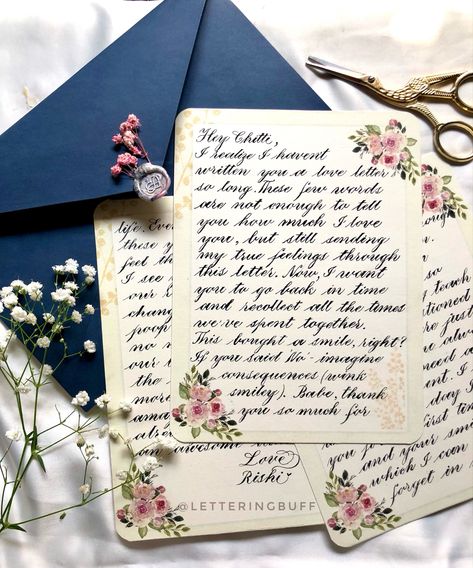 Hey Chitti,
I realize I havent
written you a love letter
so long. These few words
are not enough to tell
you how much I love
you, but still sending
my true feelings through
this letter. Now, I want
you to go back in time
and recollect all the times
we've spent together.
This bought a smile, right?
If you Said 'No'- imagine
consequences (wink
smiley). Babe, thank
you so much for
life.
these
feel
I see
our
no
our
the
more
an awesome
Love
Rishi
so
teach
just
need
I
day
first
and your
which I
forget in
@LETTERINGBUFF